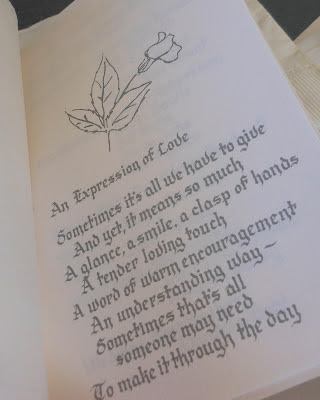 An Expression of Love
Sometimes it's all we have to give
And yet, it means so much
A glance, a smile, a clasp of hands
A tender loving touch
A word of warm encouragement
An understanding way—
Sometimes that's all
someone may need
To make it through the day